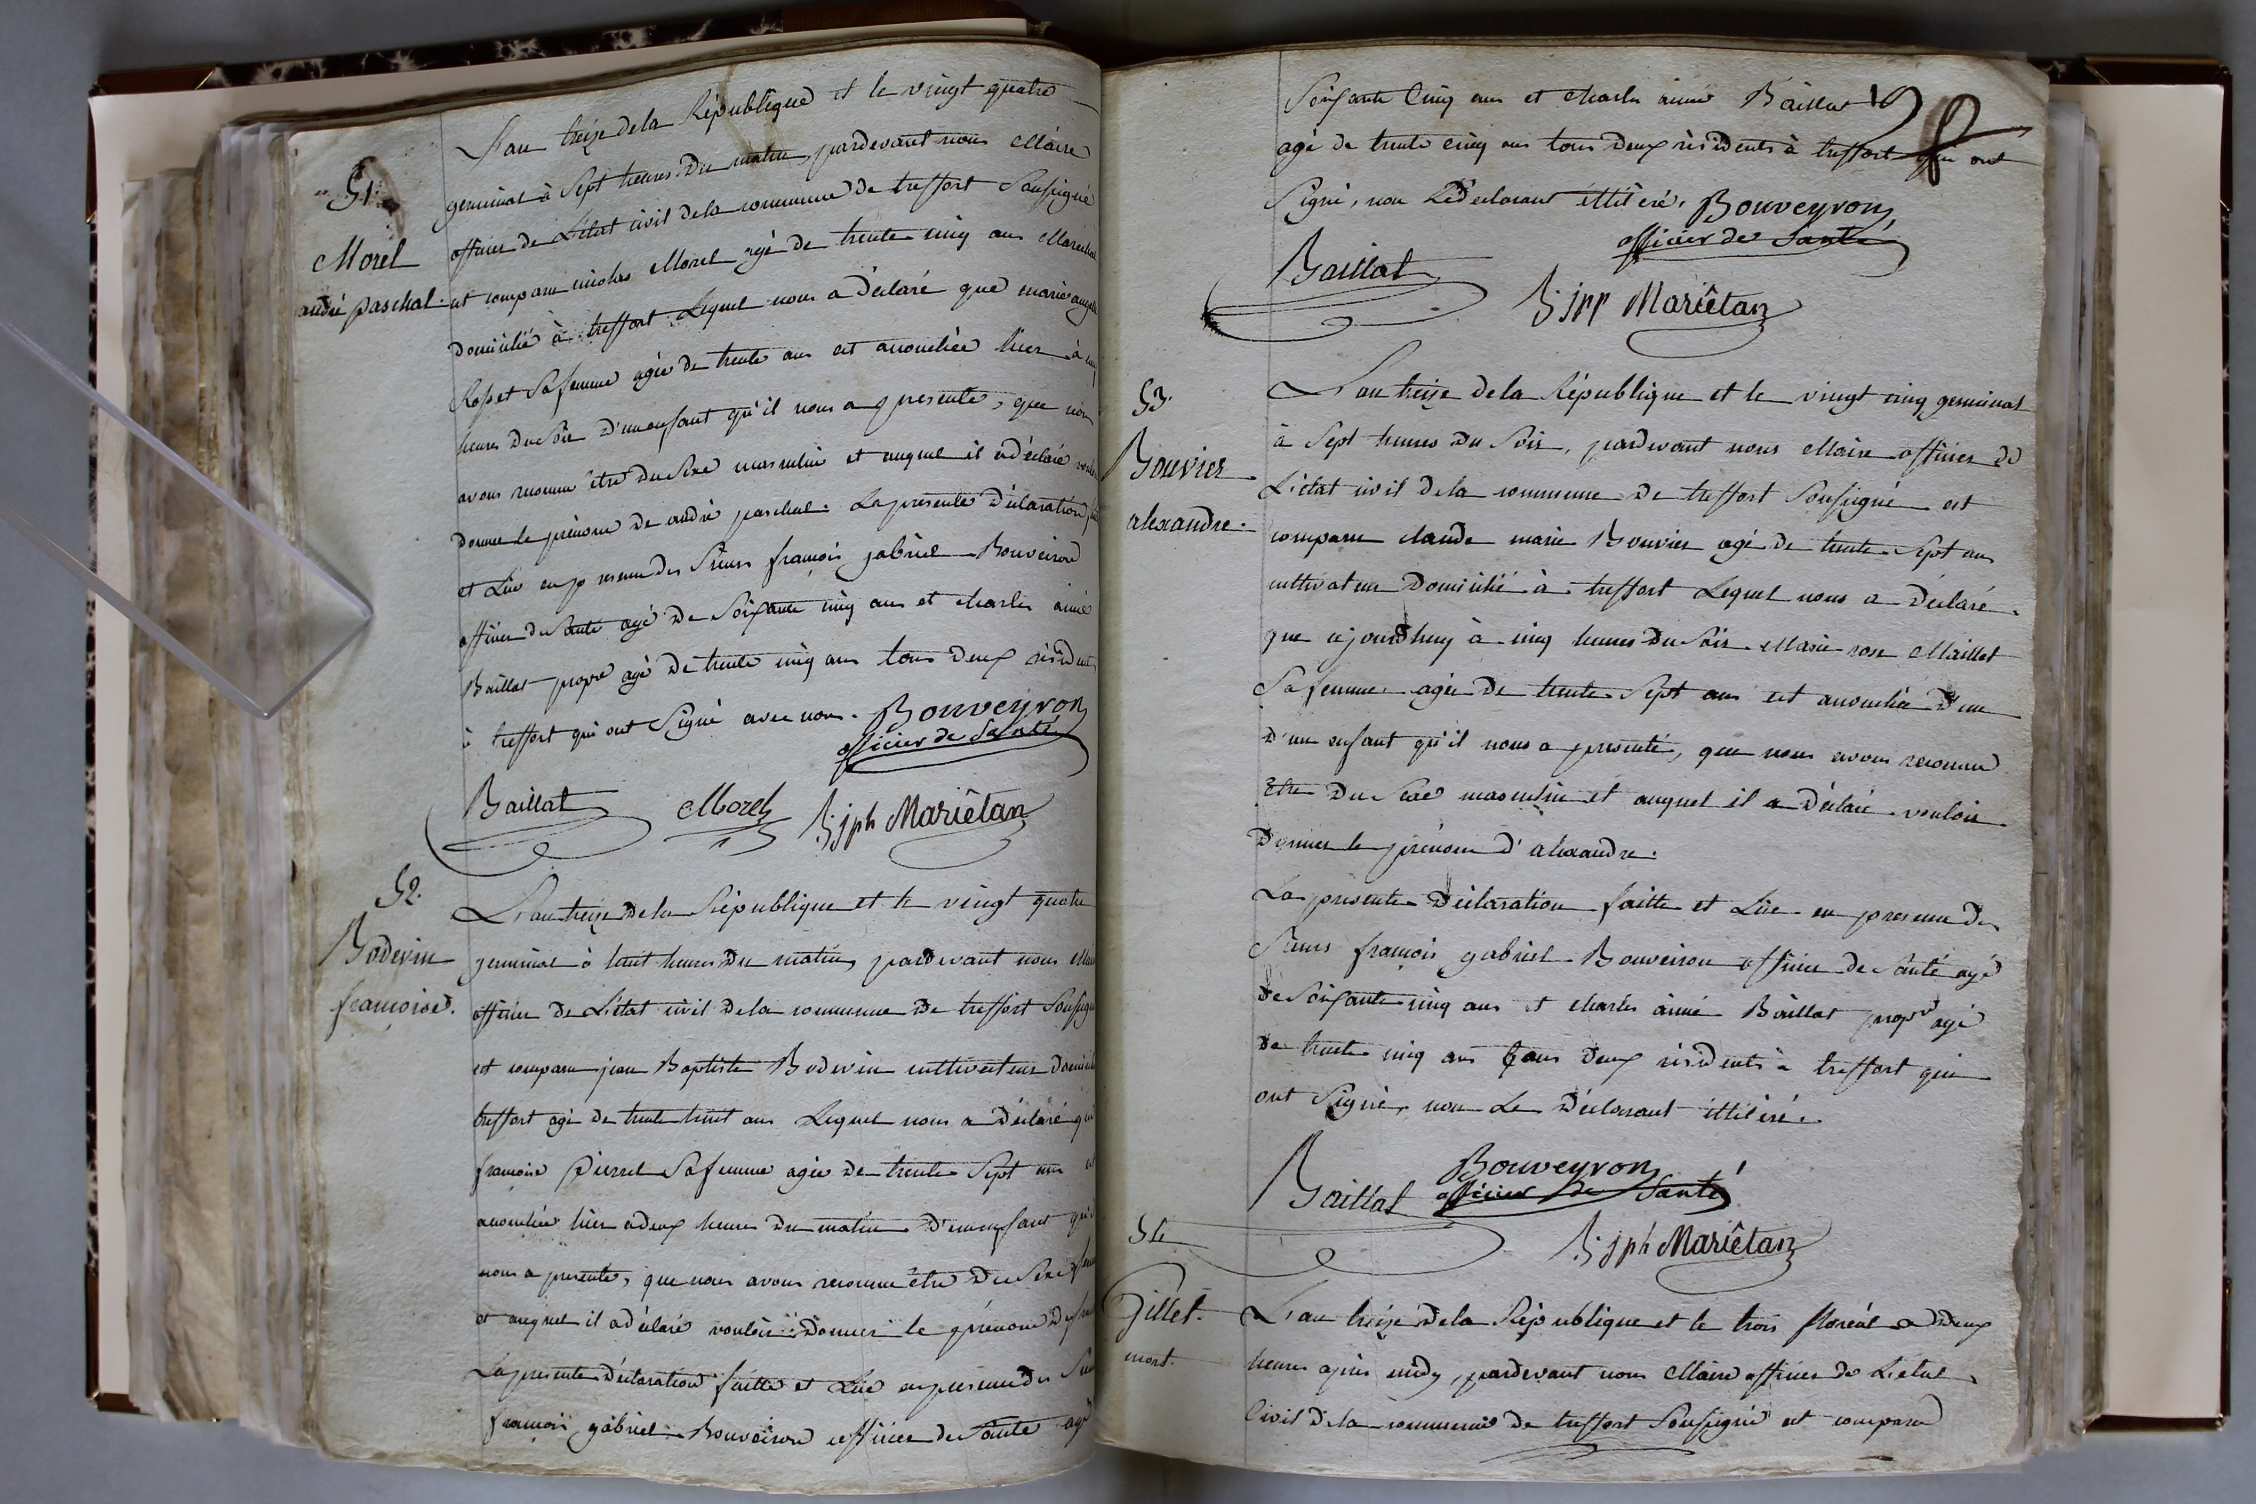 51.
Morel
andré paschal.
L'an treize de la République et le vingt quatre
germinal à Sept heures du matin, pardevant nous Maire
officier de L'état civil de la commune de treffort Soussigné
est comparu nicolas Morel agé de trente cinq ans Maréchal
domicilié à treffort Lequel nous a déclaré que marie
Sa femme agée de trente ans est accouchée hier à
heures du Soir d'un enfant qu'il nous a presenté, que nous
avons reconnu être du Sexe masculin et auquel il a déclaré
donner le prénom de andré paschal. La presente déclaration
et Lüe en presence des Sieurs françois gabriel Bouveiron
officier de Santé agé de Soixante cinq ans et charles aimé
Baillat propre agé de trente cinq ans tous deux résidents
à treffort qui ont Signé avec nous. Bouveyron
officier de Santé
Baillat Morel jph Mariêtan
52.
Bodevin
françoise.
L'an treize de la République et le vingt quatre
germinal à huit heures du matin, pardevant nous
officier de L'état civil de la commune de treffort
est comparu jean Baptiste Bodevin cultivateur
treffort agé de trente huit ans Lequel nous a déclaré que
françoise pierrel Sa femme agée de trente Sept ans
accouchée hier à deux heures du matin d'un enfant
nous a presenté, que nous avons reconnu être du Sexe
et auquel il a déclaré vouloir donner le prénom
La presente déclaration faitte et Lüe en presence des
françois gabriel Bouveiron officier de Santé agé
Soixante Cinq ans et charles aimé Baillat
agé de trente cinq ans tous deux résidents à treffort qui ont
Signé, non Le déclarant illitéré. Bouveyron
officier de Santé
Baillat
Mariêtan
53.
Bouvier
alexandre.
L'an treize de la République et le vingt cinq germinal
à Sept heures du Soir, pardevant nous Maire officier de
L'état civil de la commune de treffort Soussigné est
comparu claude marie Bouvier agé de trente Sept ans
cultivateur domicilié à treffort Lequel nous a déclaré
que cejourdhuy à cinq heures du Soir Marie rose Maillet
Sa femme agée de trente Sept ans est accouchée d'un
d'un enfant qu'il nous a presenté, que nous avons reconnu
être du Sexe masculin et auquel il a déclaré vouloir
donner le prénom d'alexandre.
La presente déclaration faitte et Lüe en presence des
Sieurs françois gabriel Bouveiron officier de Santé agé
de Soixante cinq ans et charles aimé Baillat propre agé
de trente cinq ans tous deux résidents à treffort qui
ont Signé, non Le déclarant illitéré.
Bouveyron
Baillat officier de Santé
jph Mariêtan
54
Gillet.
mort.
L'an treize de la République et le trois floréal à deux
heures après midy, pardevant nous Maire officier de L'état
Civil de la commune de treffort Soussigné est comparu